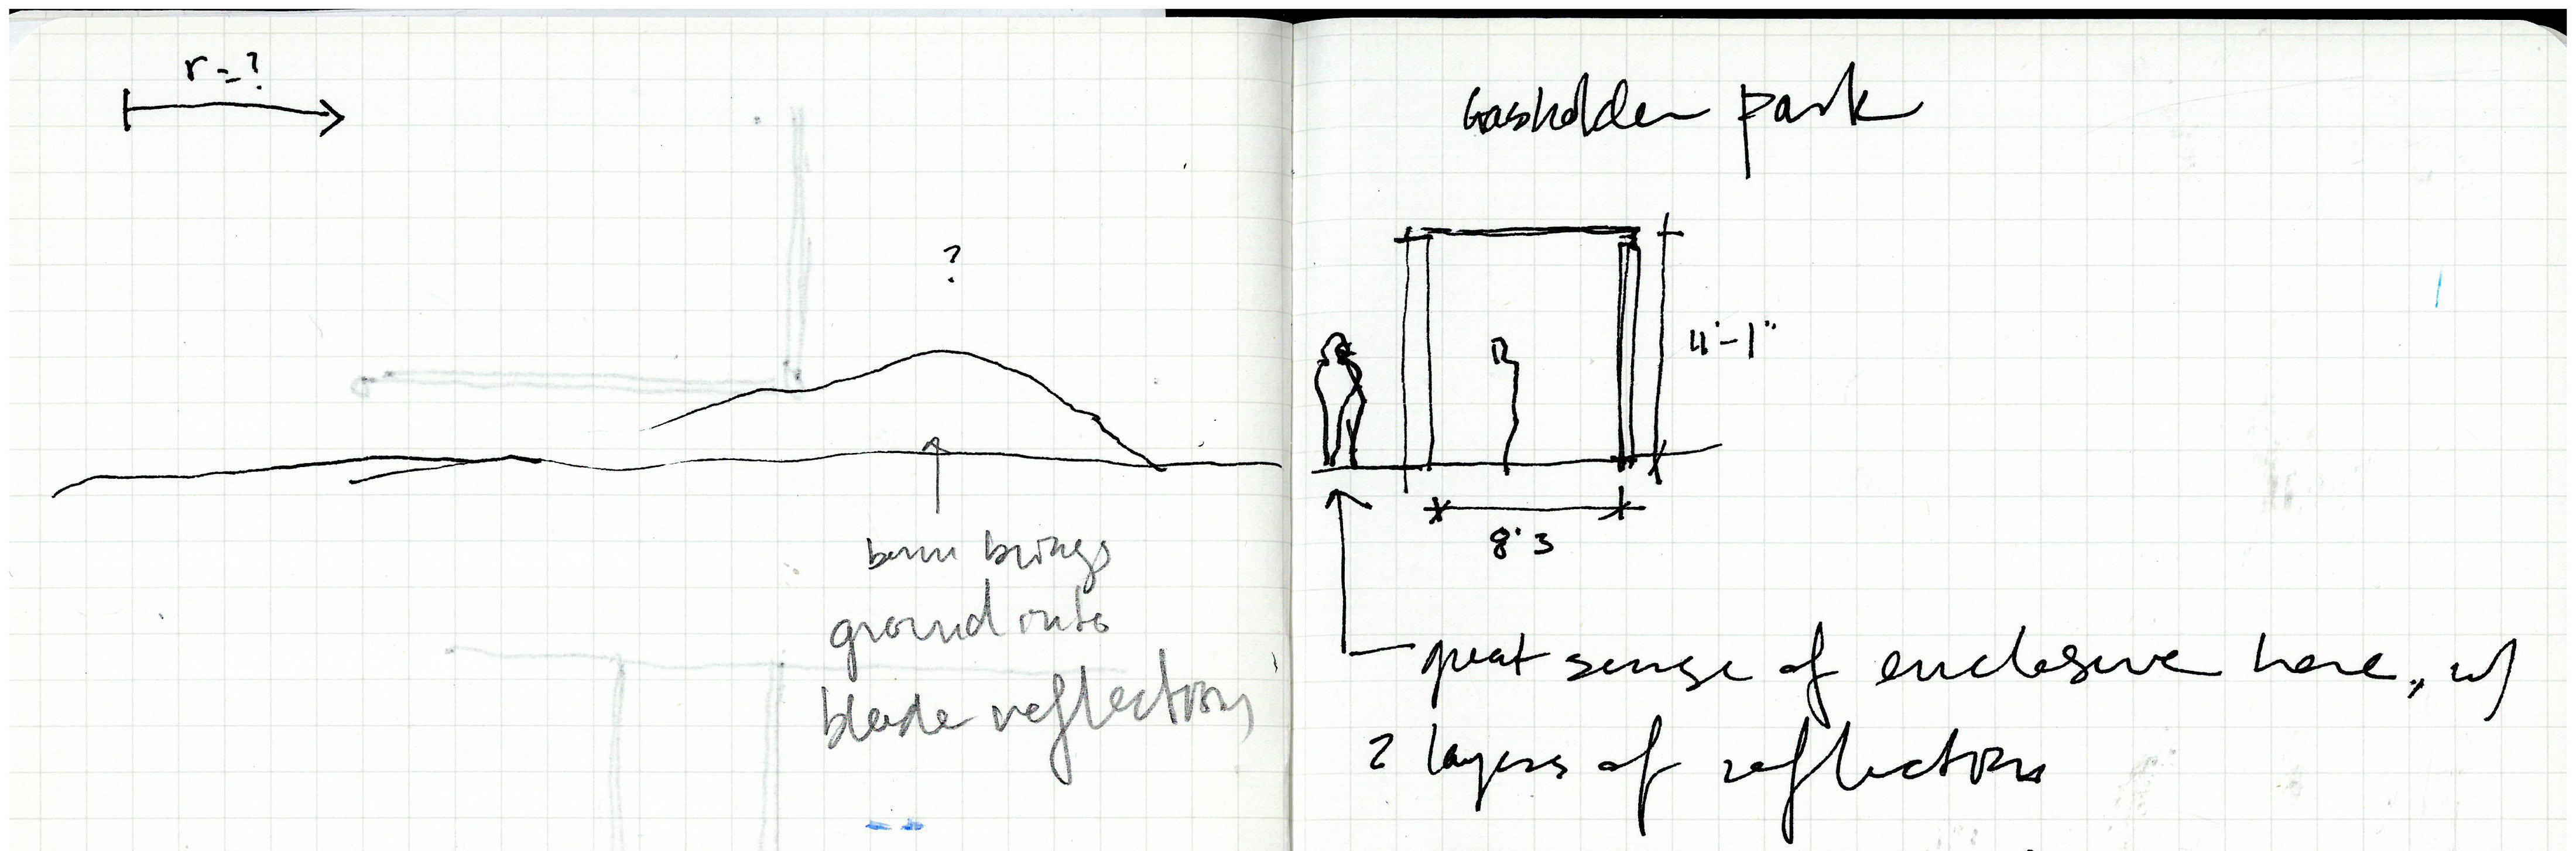 r=?
?
berm brings
ground into
blade reflections
Gasholder park
11'-1"
8'3
great sense of enclosure here, w/
2 layers of reflection